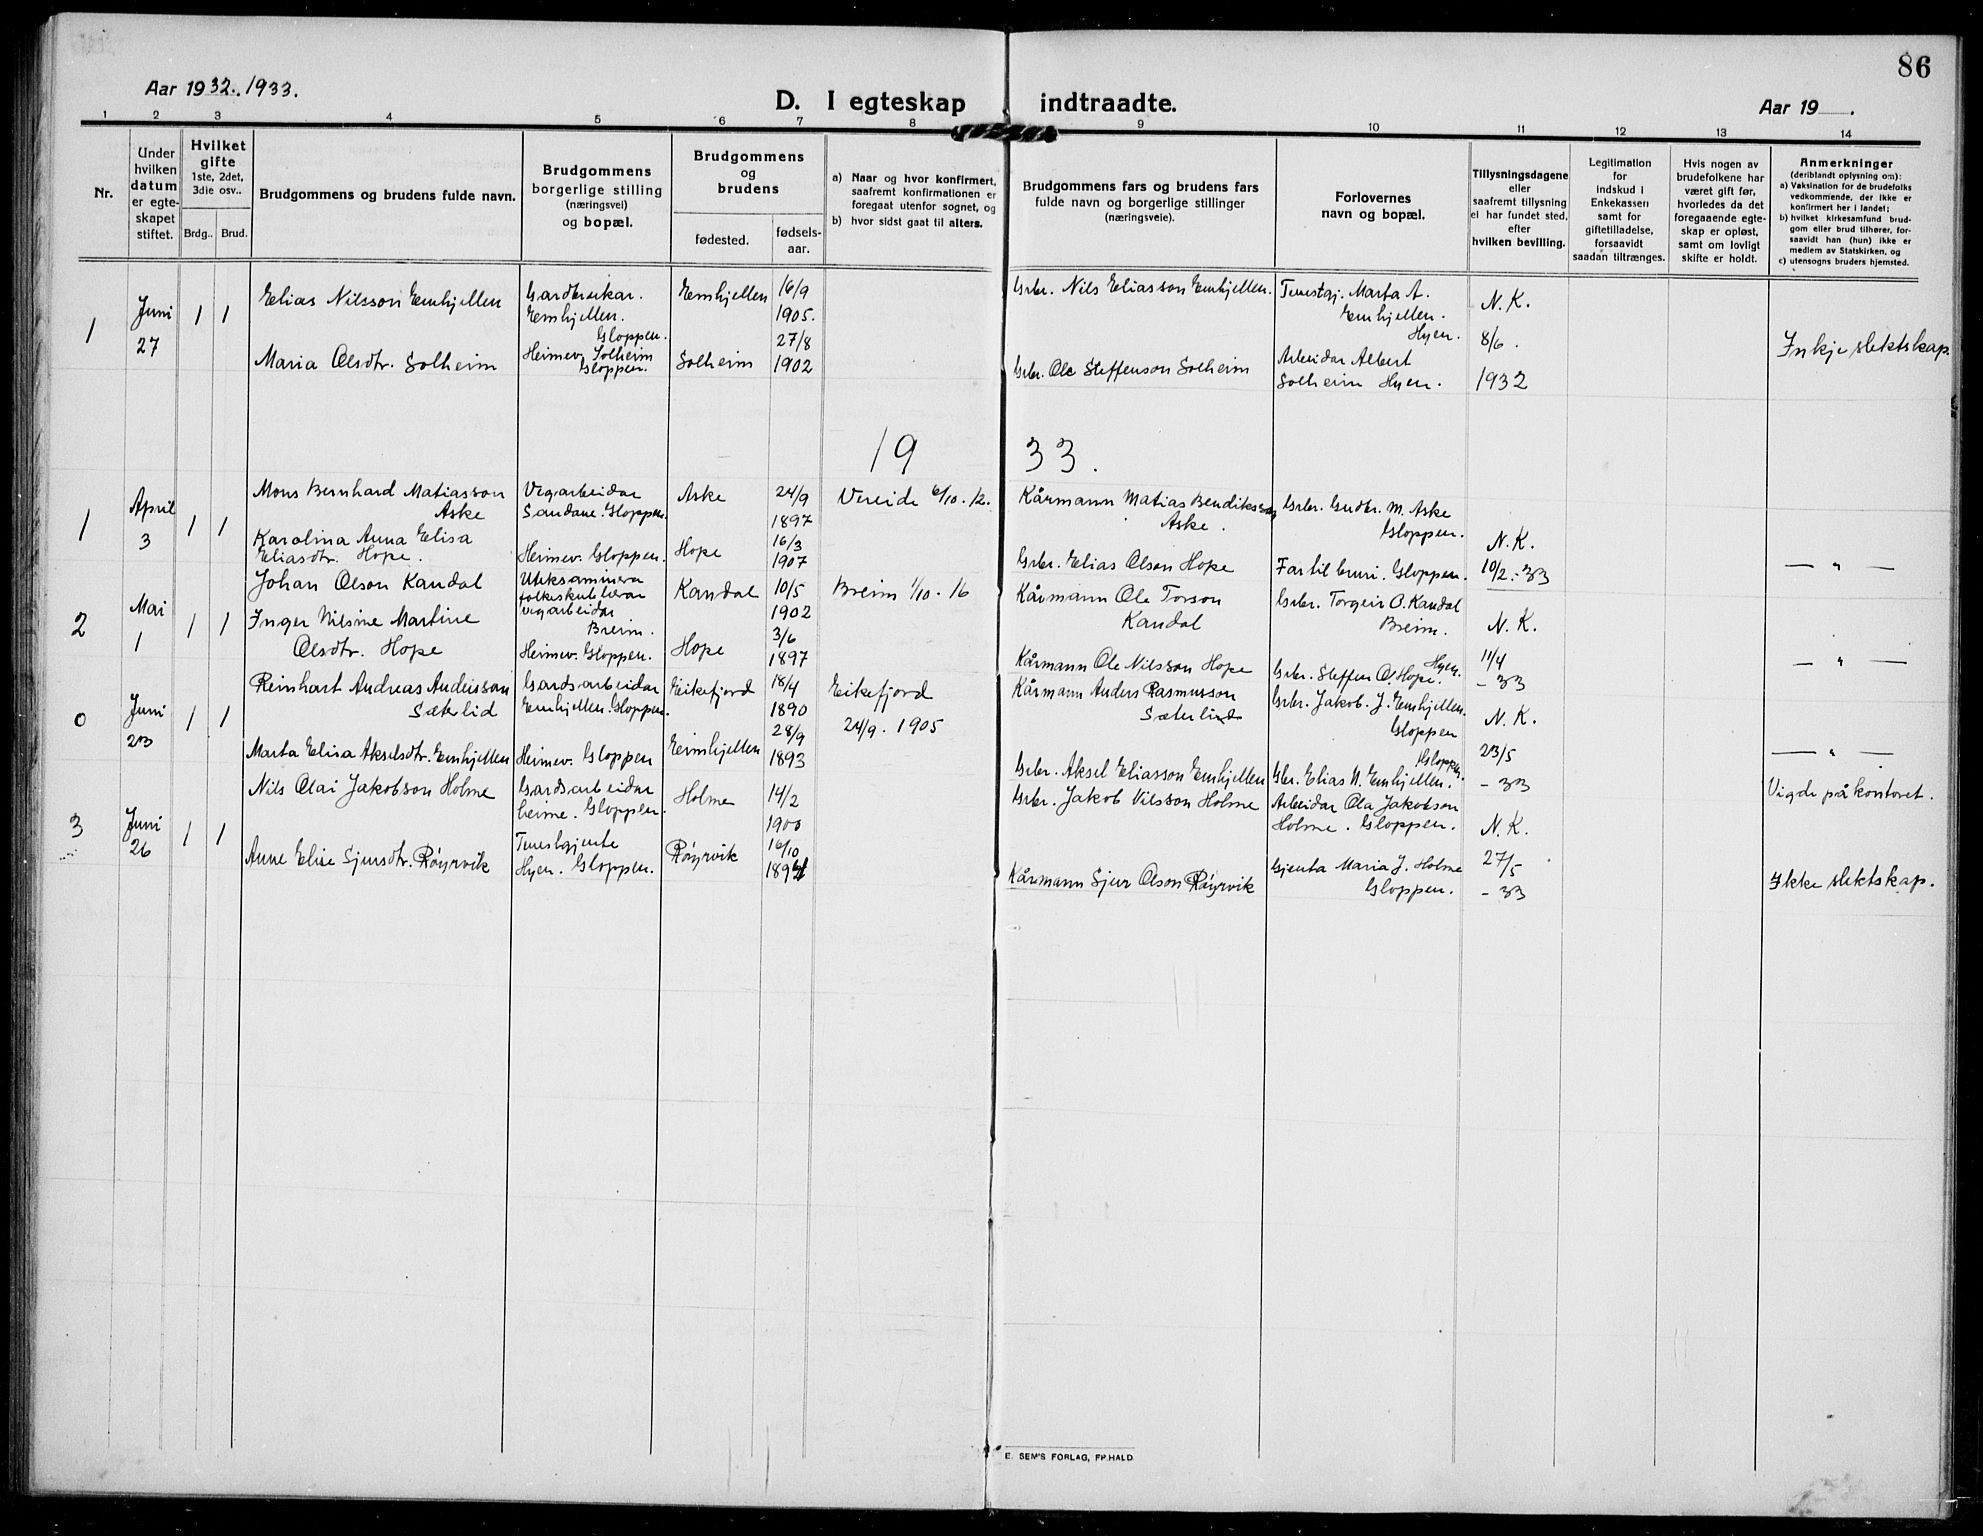 86
Aar 1932. 1933.
D. I egteskap indtraadte.
Aar 19 .
1 2 3 4 5 6 7 8 9 10 11 12 13 14
Nr.
Under hvilken datum er egteskapet stiftet.
Hvilket gifte 1ste, 2det, 3die osv..
Brdg.. Brud.
Brudgommens og brudens fulde navn.
Brudgommens borgerlige stilling (næringsvei) og bopæl.
Brudgommens og brudens
fødested.
fødsels-aar.
a) Naar og hvor konfirmert, saafremt konfirmationen er foregaat utenfor sognet, og
b) hvor sidst gaat til alters.
Brudgommens fars og brudens fars fulde navn og borgerlige stillinger (næringsveie).
Forlovernes navn og bopæl.
Tillysningsdagene eller saafremt tillysning ei har fundet sted, efter hvilken bevilling.
Legitimation for indskud i Enkekassen samt for giftetilladelse, forsaavidt saadan tiltrænges.
Hvis nogen av brudefolkene har været gift før, hvorledes da det foregaaende egteskap er opløst, samt om lovligt skifte er holdt.
Anmerkninger (deriblandt oplysning om):
a) Vaksination for de brudefolks vedkommende, der ikke er konfirmert her i landet;
b) hvilket kirkesamfund brudgom eller brud tilhører, forsaavidt han (hun) ikke er medlem av Statskirken, og
c) utensogns bruders hjemsted.
1 Juni 27 1 1 Elias Nilsson Emhjellen Gardbrukar. Emhjellen. Gloppen. Emhjellen 16/9 1905. Gbr. Nils Eliasson Emhjellen. Tenestgj. Marta A. Emhjellen. Hyen. N. K.
Maria Olsdtr. Solheim Heimev. Solheim Gloppen. Solheim 27/8 1902 Gbr. Ole Steffenson Solheim Arbeidar Albert Solheim Hyen. 8/6. 1932 Inkje slektskap.
1933.
1 April 3 1 1 Mons Bernhard Matiasson Aske Vegarbeidar Sandane. Gloppen. Aske 24/9 1897 Vereide 6/10. 12. Kårmann Matias Bendiksson Aske. Gbr. Gudbr. M. Aske Gloppen. N. K.
Karolina Anna Elisa Eliasdtr. Hope. Heimev. Gloppen. Hope 16/3 1907 Gbr. Elias Olson Hope Far til bruri. Gloppen. 10/2.-33 — " —
2 Mai 1 1 1 Johan Olson Kandal Uteksaminera folkeskulelærar vegarbeidar Breim. Kandal 10/5 1902 Breim 1/10. 16 Kårmann Ole Torson Kandal Gbr. Torgeir O. Kandal Breim. N. K.
Inger Nilsine Martine Olsdtr. Hope Heimev. Gloppen. Hope 3/6 1897 Kårmann Ole Nilsson Hope Gbr. Steffen O. Hope. Hyen. 11/4 - 33 — " —
0 Juni 23 1 1 Reinhart Andreas Andersson Sæterlid Gardsarbeidar Emhjellen. Gloppen. Eikefjord 18/4 1890 Eikefjord 24/9. 1905 Kårmann Anders Rasmusson Sæterlid Gbr. Jakob. J. Emhjellen. Gloppen N. K.
Marta Elisa Akselsdtr. Emhjellen Heimev. Gloppen Eimhjellen 28/9 1893 Gbr. Aksel Eliasson Emhjellen Gbr. Elias N. Emhjellen. Gloppen. 23/5 - 33 — " —
3 Juni 26 1 1 Nils Olai Jakobson Holme Gardsarbeidar heime. Gloppen. Holme 14/2 1900 Gbr. Jakob Nilsson Holme Arbeidar Ola Jakobson Holme. Gloppen. N. K. Vigde på kontoret.
Anne Elise Sjursdtr. Røyrvik Tenestgjente Hyen. Gloppen. Røyrvik 16/10 1894 Kårmann Sjur Olson Røyrvik Gjenta Maria J. Holme Gloppen. 27/5 - 33 Ikke slektskap.
E. SEM'S FORLAG, FR.HALD